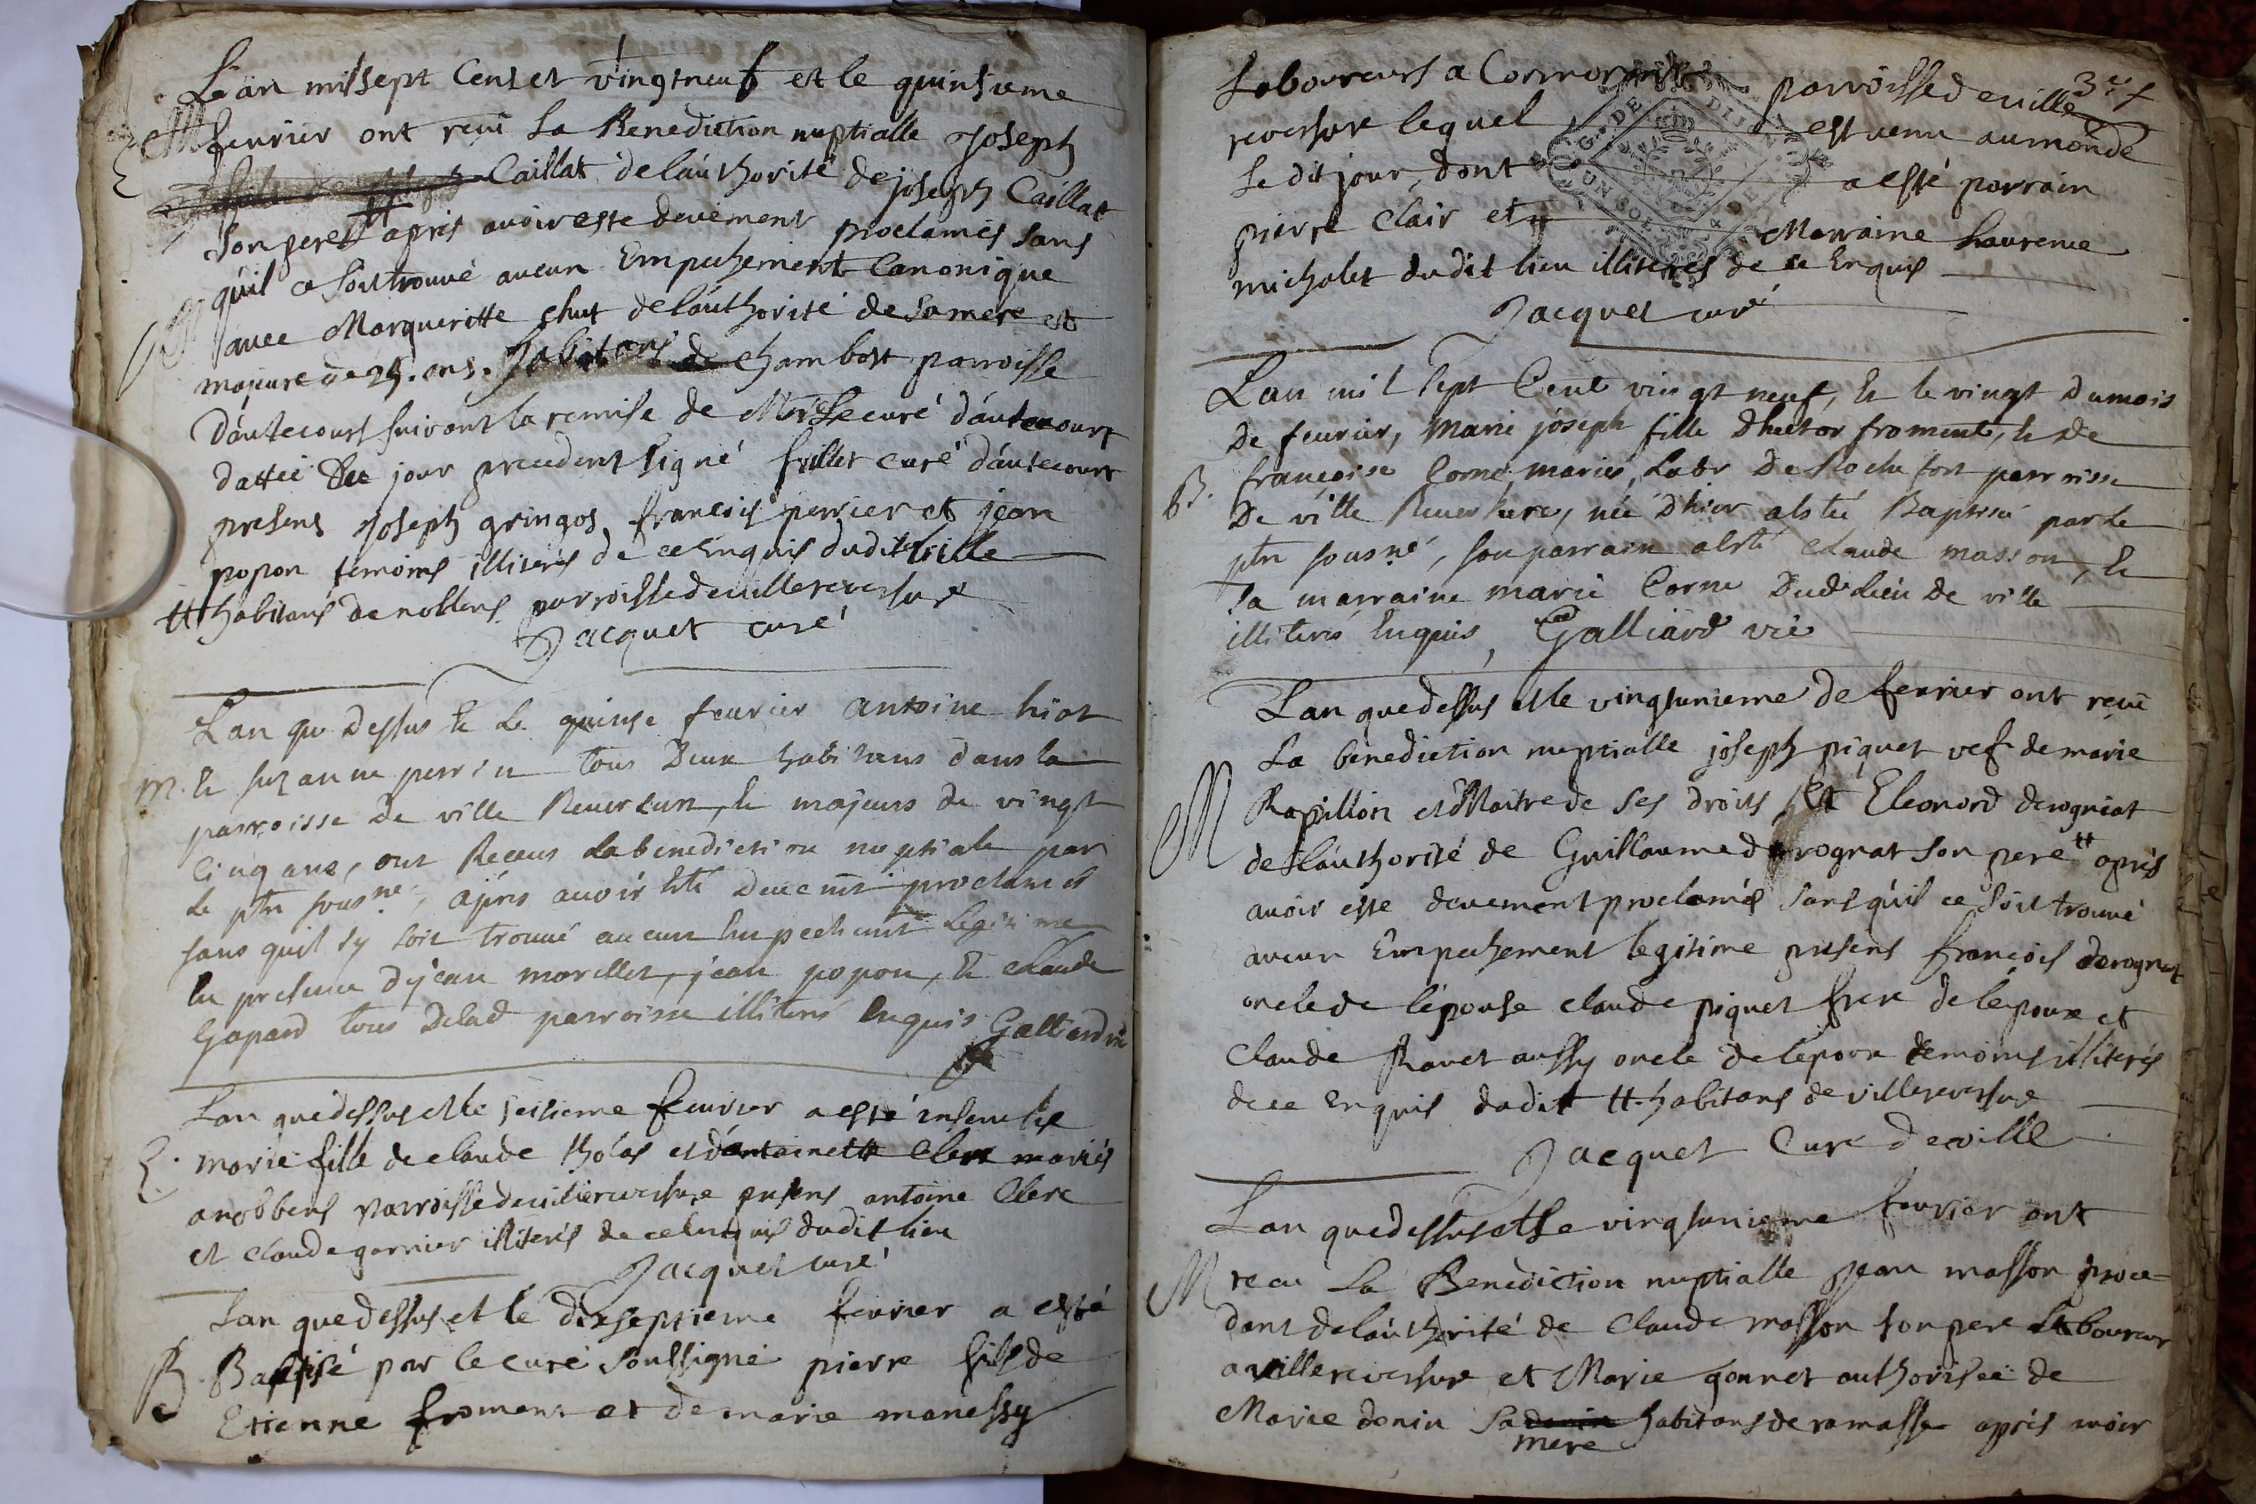 Lan mil sept Cent et vingtneuf et le quinsieme
M
fevrier ont reçu La Benediction nuptialle Joseph
Caillat de láuthorité de joseph Caillat
Son pere tt apres avoir este devement proclamés sans
qúil ce soit trouvé aucun Empechement Canonique
avec Margueritte chut de láuthorité de Samere est
majeure de 25. ans. habitans de chambost parroisse
Dáutecourt suivant la remise de Mre Le curé dáutecourt
dattée Du jour precedent signé frillet curé dáutecourt
presens Joseph gringos françois perrier et jean
popon temoins illiterés de ce Enquis dudit ville
tt habitans de nobbens parroisse de villereversure
Jacquet curé
Lan que Dessus & Le quinse fevrier antoine hiot
M. & suzanne perrin tous Deux habitans dans la
parroisse De ville Reversure, & majeurs de vingt
Cinq ans, ont Receus La benediction nuptiale par
Le ptre sousné, ápres avoir esté Deuemt proclamés
sans quil sy soit trouvé aucun Empechemt Legitime
En presence Djean morillet, jean popon, & claude
Gapard tous Delad parroisse illiterés Enquis Galliard vic
Lan que dessus et le seisieme fevrier a esté ensevelie
E. marie fille de claude thólas et dántoinette Clerc mariés
a nobbens parroisse de villereversure presens antoine Clerc
et claude garnier illiterés de ce Enquis dudit lieu
Jacquet curé
Lan que dessus et le dixseptieme fevrier a esté
B Baptisé par le curé soussigné pierre fils de
Etienne froment et de marie manessy
3e f
Laboureurs a Cormorand parroisse de ville
reversure lequel est venu au monde
Le dit jour, dont a esté parrain
pierre Clair et Marraine Laurence
michalet dudit lieu illiterés de ce Enquis
Jacquet curé
Lan mil sept Cent vingt neuf, & le vingt Dumois
De fevrier, Marie joseph fille Dhector froment, & De
françoise Corne mariés Labr De Rochefort parroisse
B. De ville Reversure, née Dhier a esté Baptisée par Le
ptre sousné, son parrain a esté Claude masson, &
Sa marraine marie Corne Dudt lieu De ville
illiterés Enquis, Galliard vic
Lan que dessus et le vingtunieme de fevrier ont reçu
La benediction nuptialle joseph piquet vef de marie
M
Rapillon et Maitre de ses droits et Eleonord derognat
de láuthorité de Guillaume derognat son pere tt apres
avoir esté devement proclamés sans qúil ce soit trouvé
aucun Empechement legitime presens françois derognat
oncle de lépouse claude piquet frere de lépoux et
Claude Ravet aussy oncle de lépoux temoins illiterés
de ce Enquis dudit tt habitans de villereversure
Jacquet Curé de ville
Lan que dessus et le vingtunieme fevrier ont
M recu La Benediction nuptialle Jean masson proce-
dant de láuthorité de Claude masson son pere Laboureur
a villereversure et Marie gonnet authorisée de
Marie denin sa mere habitans de ramasse apres avoir